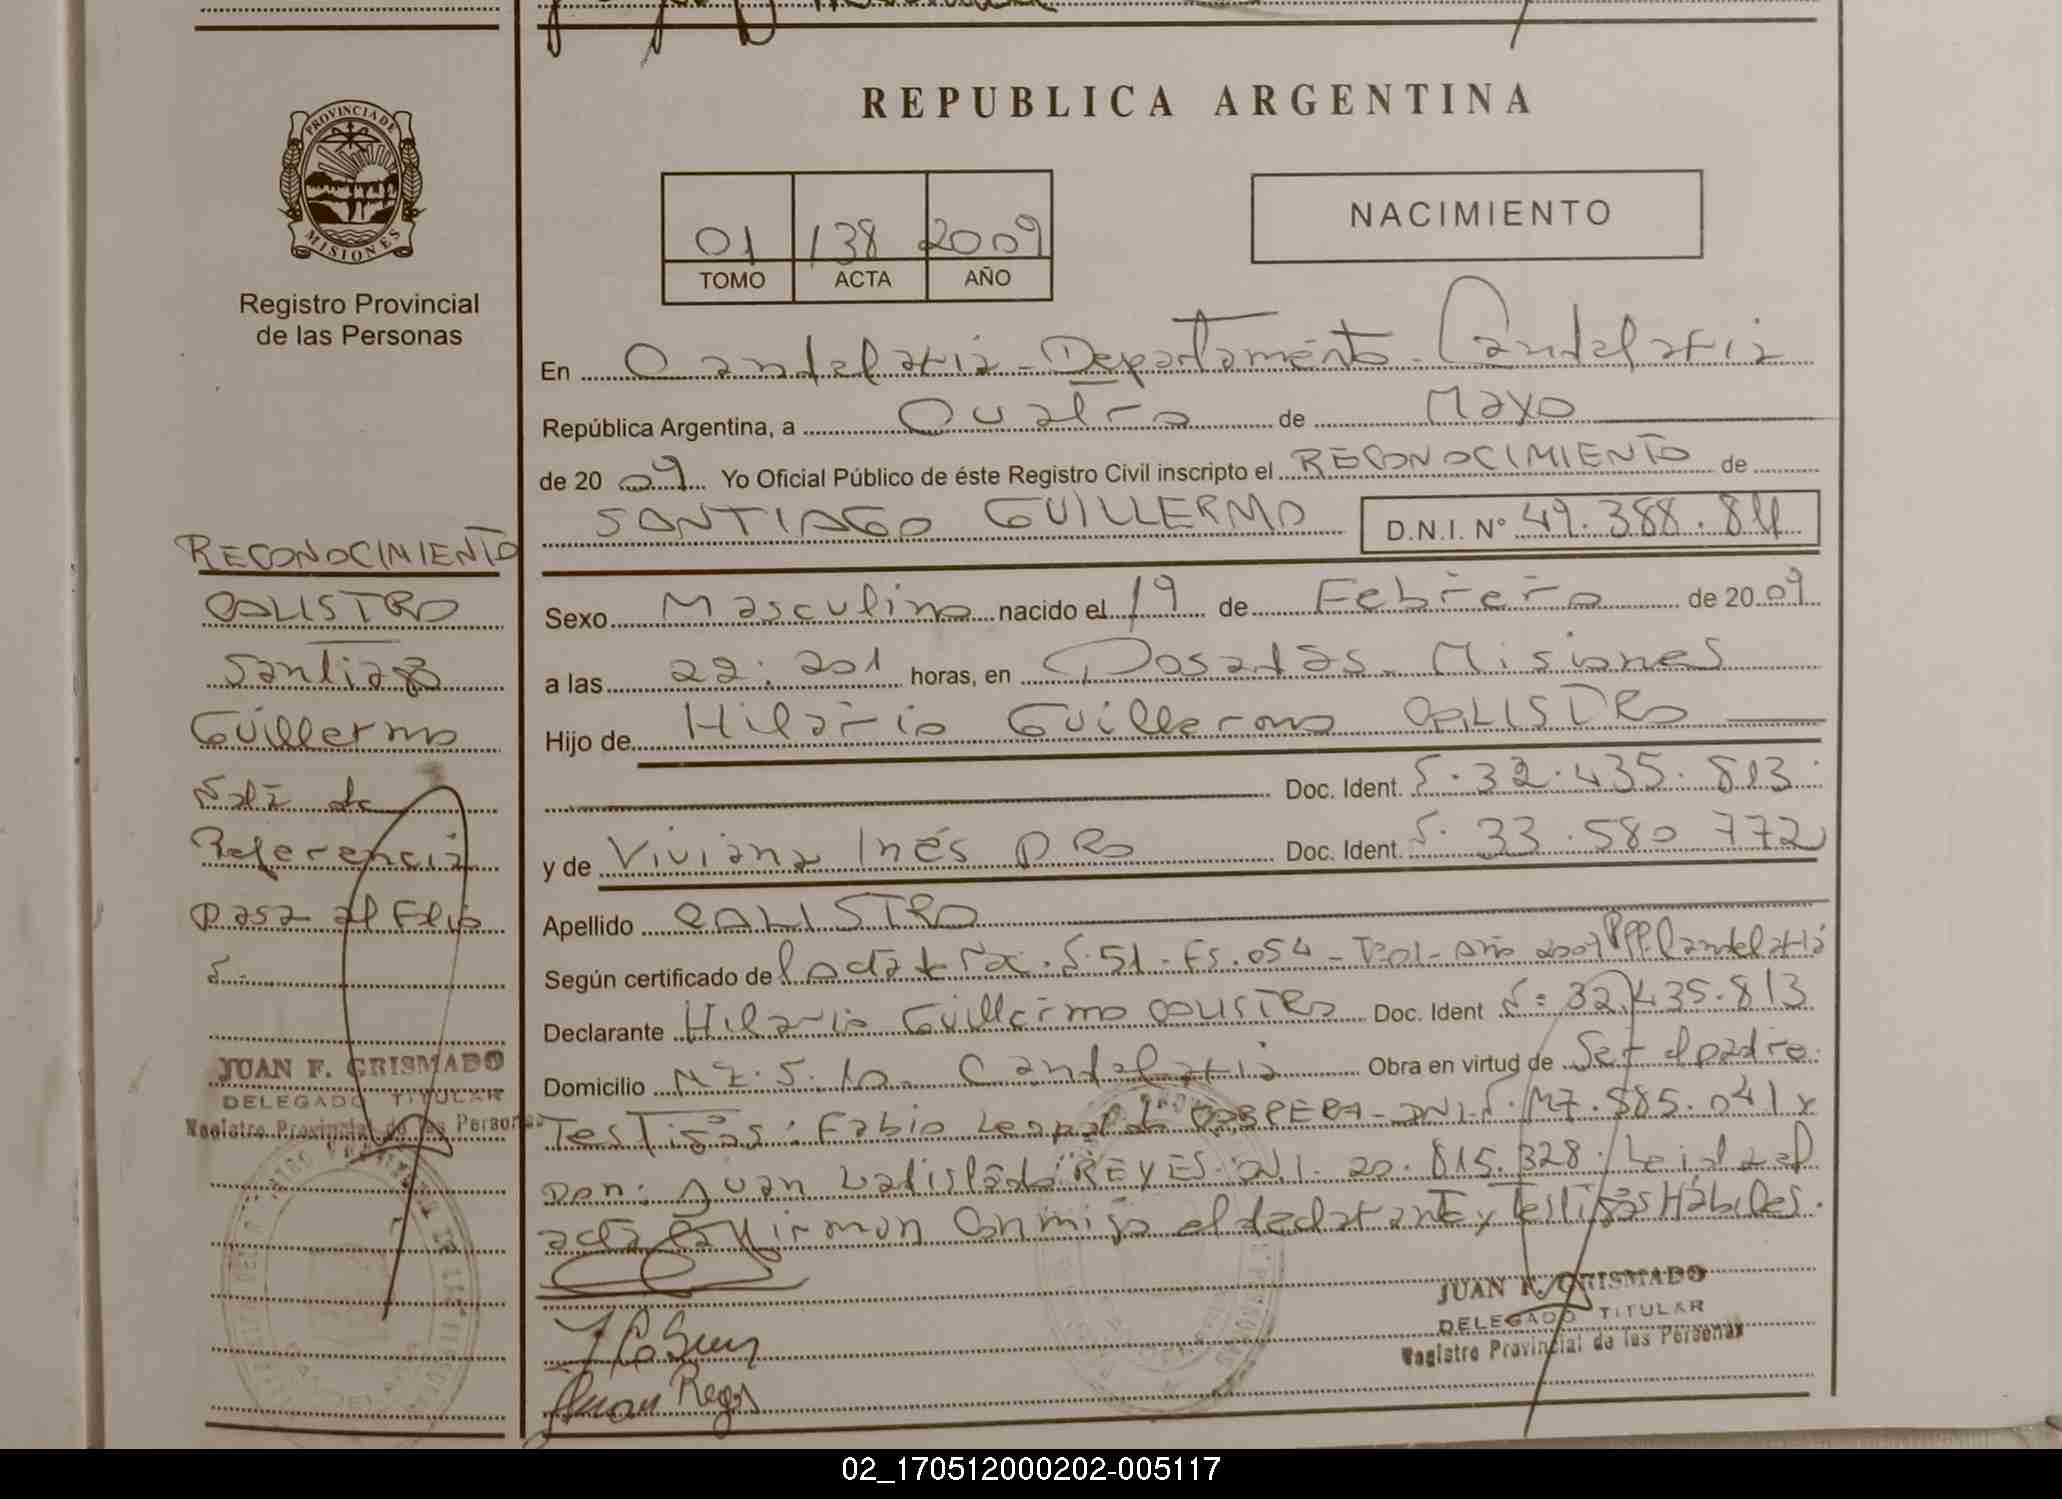 PROVINCIA DE
MISIONES
Registro Provincial
de las Personas
RECONOCIMIENTO
CALISTRO
Santiago
Guillermo
Nota de
Referencia
Pasa al Folio
JUAN F. GRISMADO
DELEGADO TITULAR
Registro Provincial de las Personas
REPUBLICA ARGENTINA
01 138 2009
TOMO ACTA AÑO
NACIMIENTO
En Candelaria - Departamento Candelaria
República Argentina, a Cuatro de Mayo
de 2009 Yo Oficial Público de éste Registro Civil inscripto el RECONOCIMIENTO de
SANTIAGO GUILLERMO D.N.I. Nº 49.388.811
Sexo Masculino nacido el 19 de Febrero de 2009
a las 22:20 horas, en Posadas - Misiones
Hijo de Hilario Guillermo CALISTRO
Doc. Ident. 32.435.813
y de Viviana Inés Doc. Ident. 33.580.772
Apellido CALISTRO
Según certificado de Acta 51 - Fs. 054 - Año Candelaria
Declarante Hilario Guillermo CALISTRO Doc. Ident 32.435.813
Domicilio Mz. 5 Candelaria Obra en virtud de Ser el padre
Testigos: Fabio CABRERA - DNI M7.885.041 y
Don: Juan Ladislado REYES DNI. 20.815.328. Leida el
acta la firman conmigo el declarante y testigos Hábiles.
JUAN F. GRISMADO
DELEGADO TITULAR
Registro Provincial de las Personas
Juan Reyes
02_170512000202-005117